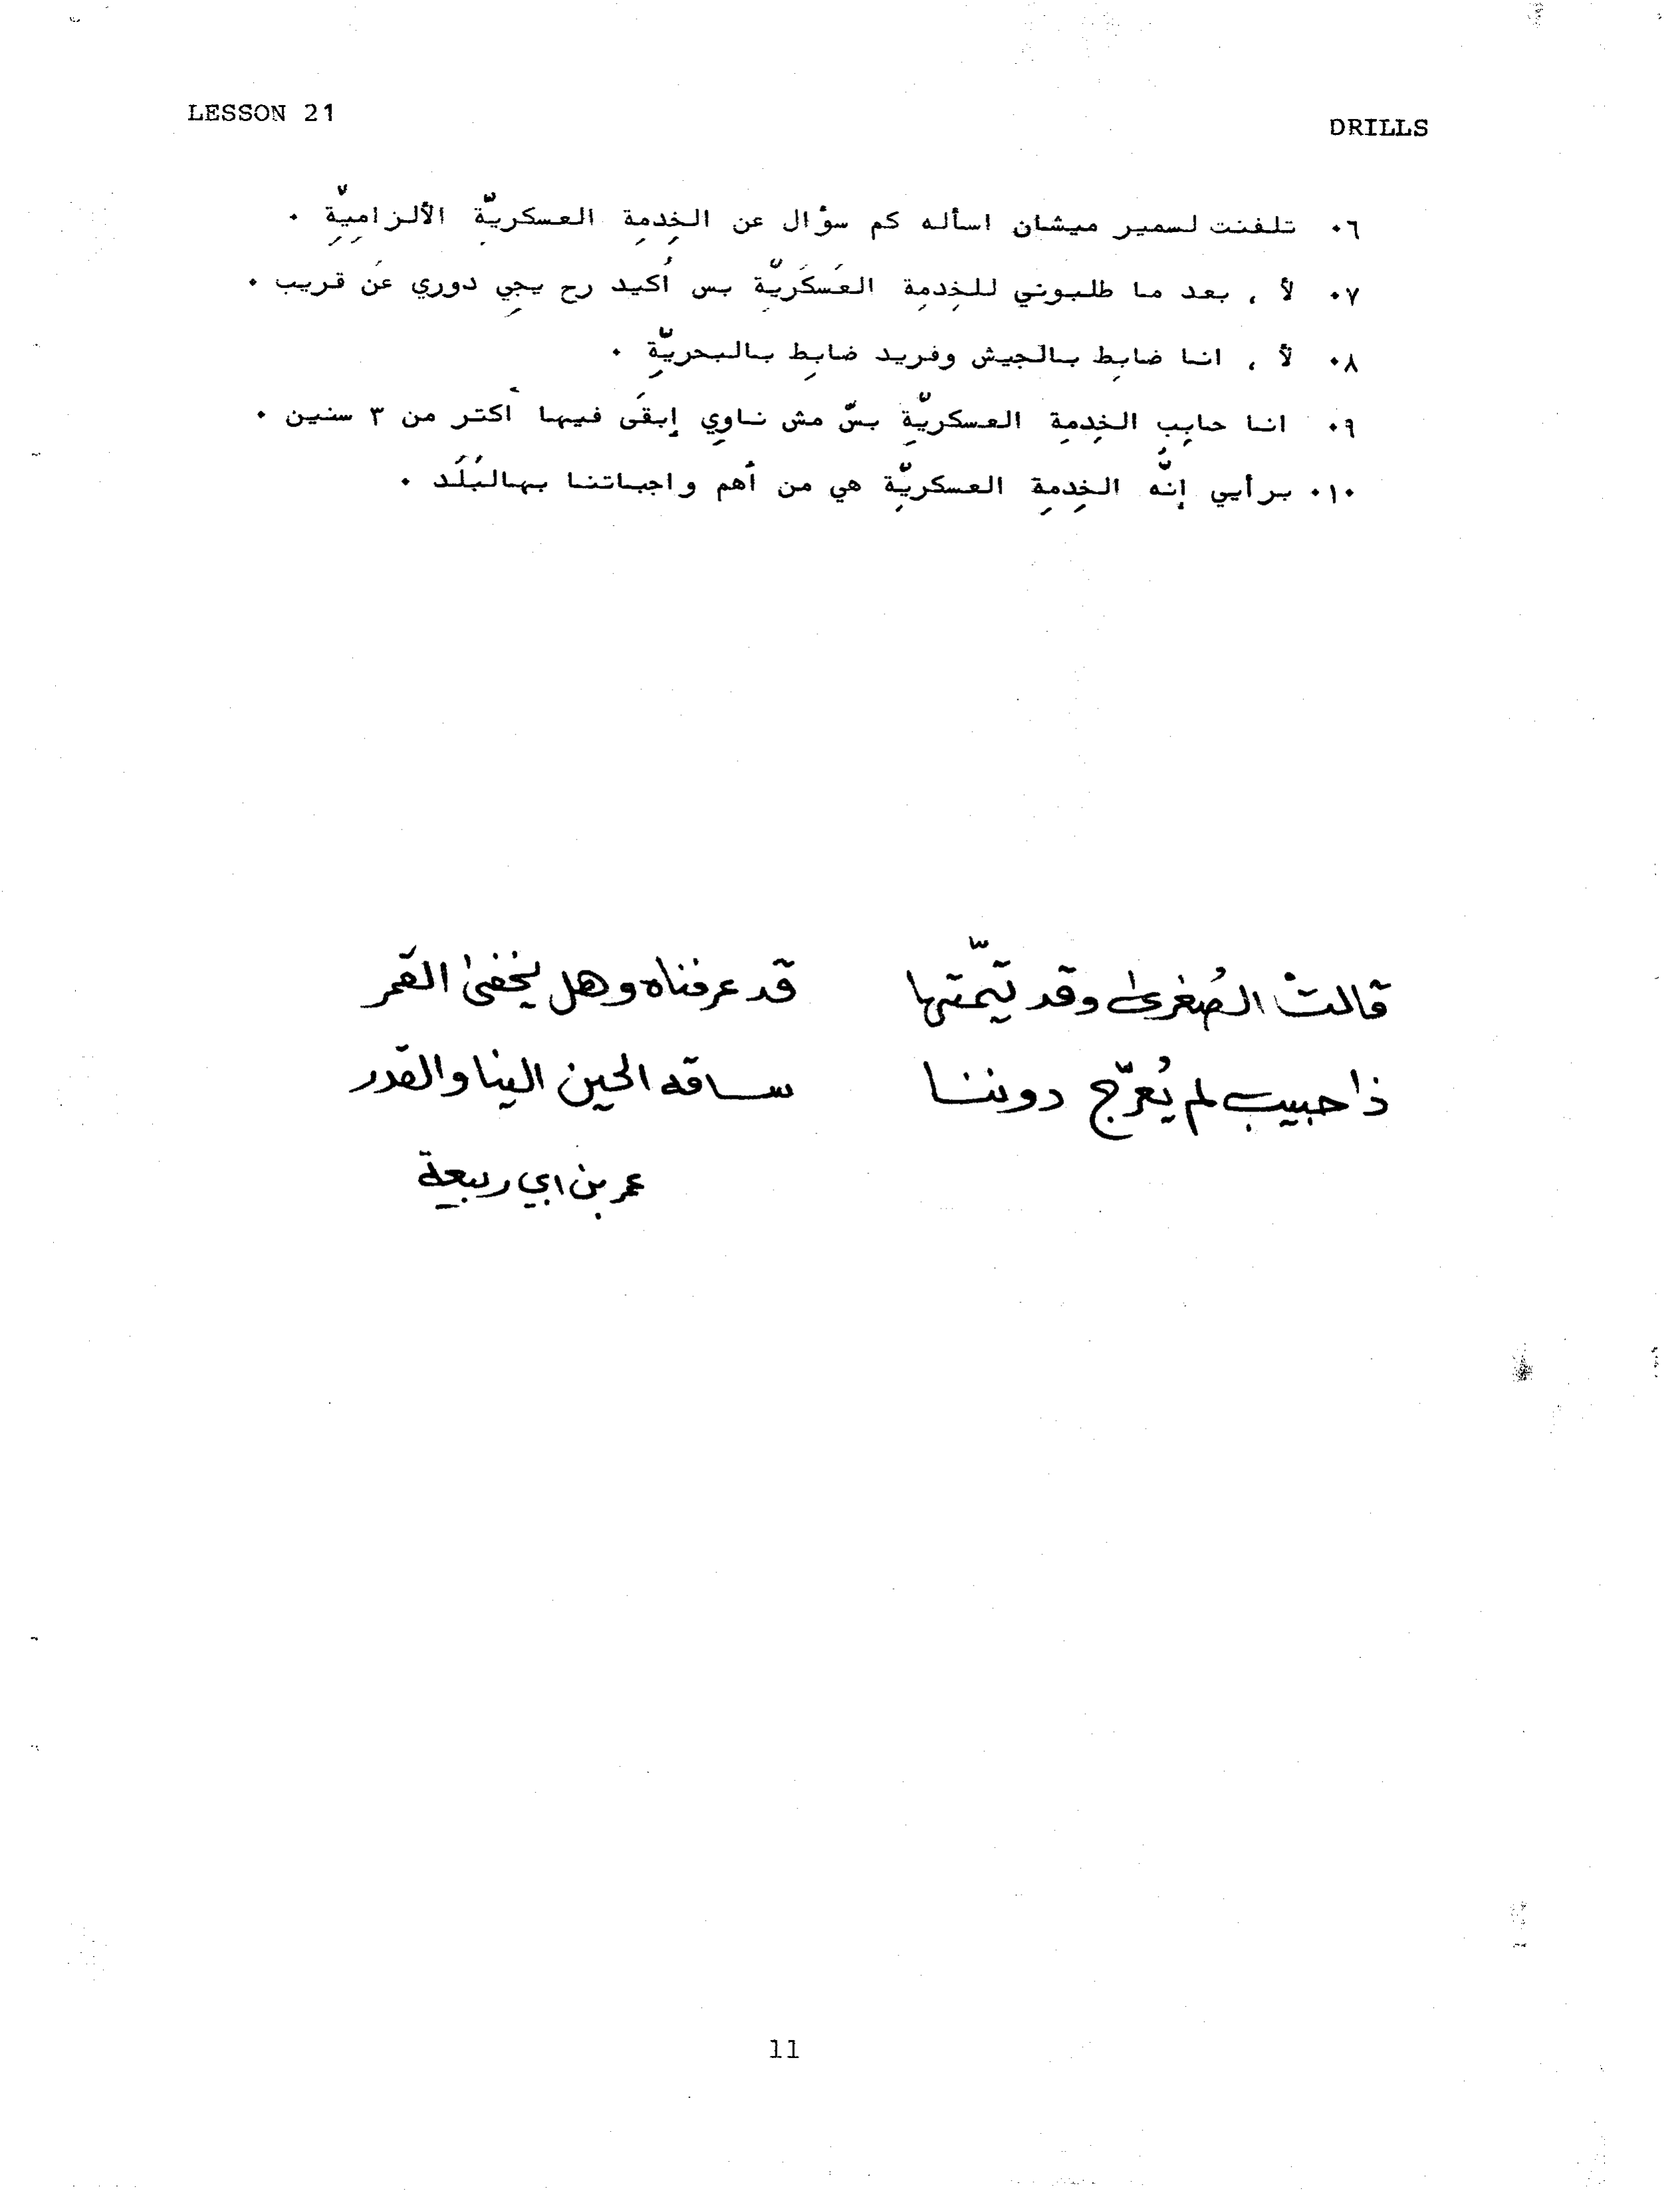 LESSON 21
DRILLS
٠٦ تلفنت لسمير ميشان اسأله كم سؤال عن الخِدمِة العسكريِّة الألزامِيِّة .
٠٧ لأ ، بعد ما طلبوني للخِدمِة العَسكَريِّة بس أكيد رح يجِي دوري عَن قريب .
٠٨ لأ ، انا ضابِط بالجيش وفريد ضابِط بالبحريِّة .
٠٩ انا حابِب الخِدمِة العسكريِّة بسّ مش ناوِي إبقَى فيها أكتر من ٣ سنين .
٠١٠ برأيي إنُّه الخِدمِة العسكريِّة هي من أهم واجباتنا بهالبَلَد .
قالتْ الصُغرىٰ وقد تيّمتها قد عرفناه وهل يخفىٰ القمر
ذا حبيب لم يُعرّج دوننا ساقه الحين الينا والقدر
عمر بن ابي ربيعة
11